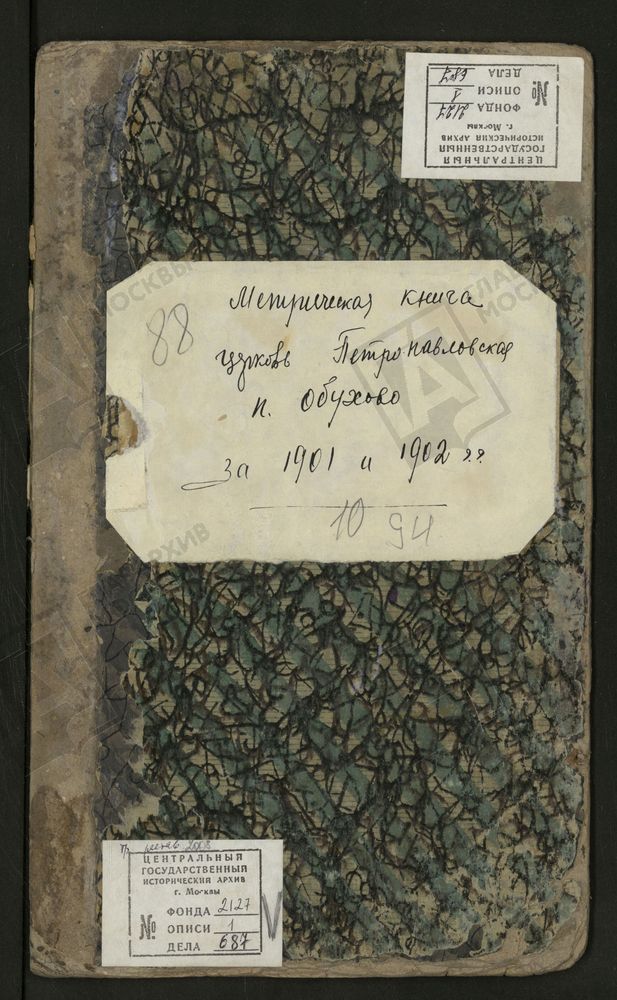 ЦЕНТРАЛЬНЫЙ
ГОСУДАРСТВЕННЫЙ
ИСТОРИЧЕСКИЙ АРХИВ
г. Москвы
№
ФОНДА 2127
ОПИСИ 1
ДЕЛА 687
88
Метрическая книга
церковь Петропавловская
п. Обухово
за 1901 и 1902 г.г.
10 94
ЦЕНТРАЛЬНЫЙ
ГОСУДАРСТВЕННЫЙ
ИСТОРИЧЕСКИЙ АРХИВ
г. Москвы
№
ФОНДА 2127
ОПИСИ 1
ДЕЛА 687